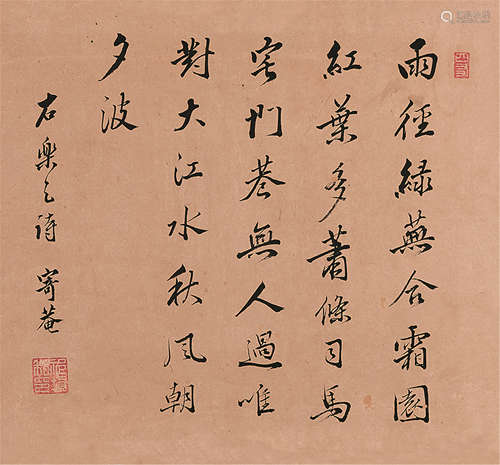 雨徑綠蕪合霜園
紅葉多蕭條司馬
宅門巷無人過唯
對大江水秋風朝
夕波
右樂之詩 寄菴